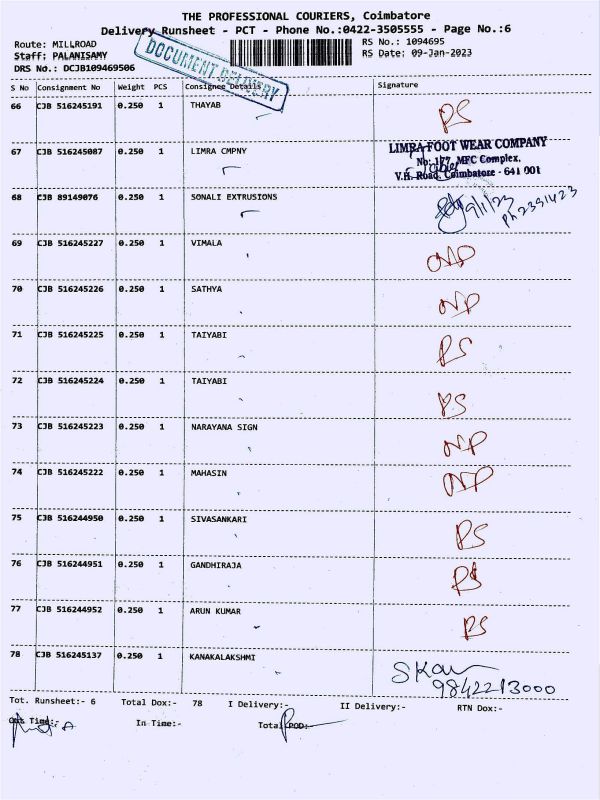 THE PROFESSIONAL COURIERS, Coimbatore
Delivery Runsheet - PCT - Phone No.:0422-3505555 - Page No.:6
Route: MILLROAD
RS No.: 1094695
Staff: PALANISAMY
RS Date: 09-Jan-2023
DRS No.: DCJB109469506
DOCUMENT DELIVERY
S No Consignment No Weight PCS Consignee Details Signature
66 CJB 516245191 0.250 1 THAYAB RS
67 CJB 516245087 0.250 1 LIMRA CMPNY
LIMRA FOOT WEAR COMPANY
No: 177, MFC Complex,
V.H. Road, Coimbatore - 641 001
68 CJB 89149076 0.250 1 SONALI EXTRUSIONS 9/1/23
Ph 2391423
69 CJB 516245227 0.250 1 VIMALA NP
70 CJB 516245226 0.250 1 SATHYA NP
71 CJB 516245225 0.250 1 TAIYABI RS
72 CJB 516245224 0.250 1 TAIYABI RS
73 CJB 516245223 0.250 1 NARAYANA SIGN NP
74 CJB 516245222 0.250 1 MAHASIN NP
75 CJB 516244950 0.250 1 SIVASANKARI RS
76 CJB 516244951 0.250 1 GANDHIRAJA RS
77 CJB 516244952 0.250 1 ARUN KUMAR RS
78 CJB 516245137 0.250 1 KANAKALAKSHMI
9842213000
Tot. Runsheet:- 6 Total Dox:- 78 I Delivery:- II Delivery:- RTN Dox:-
Out Time:- In Time:- Total POD:-